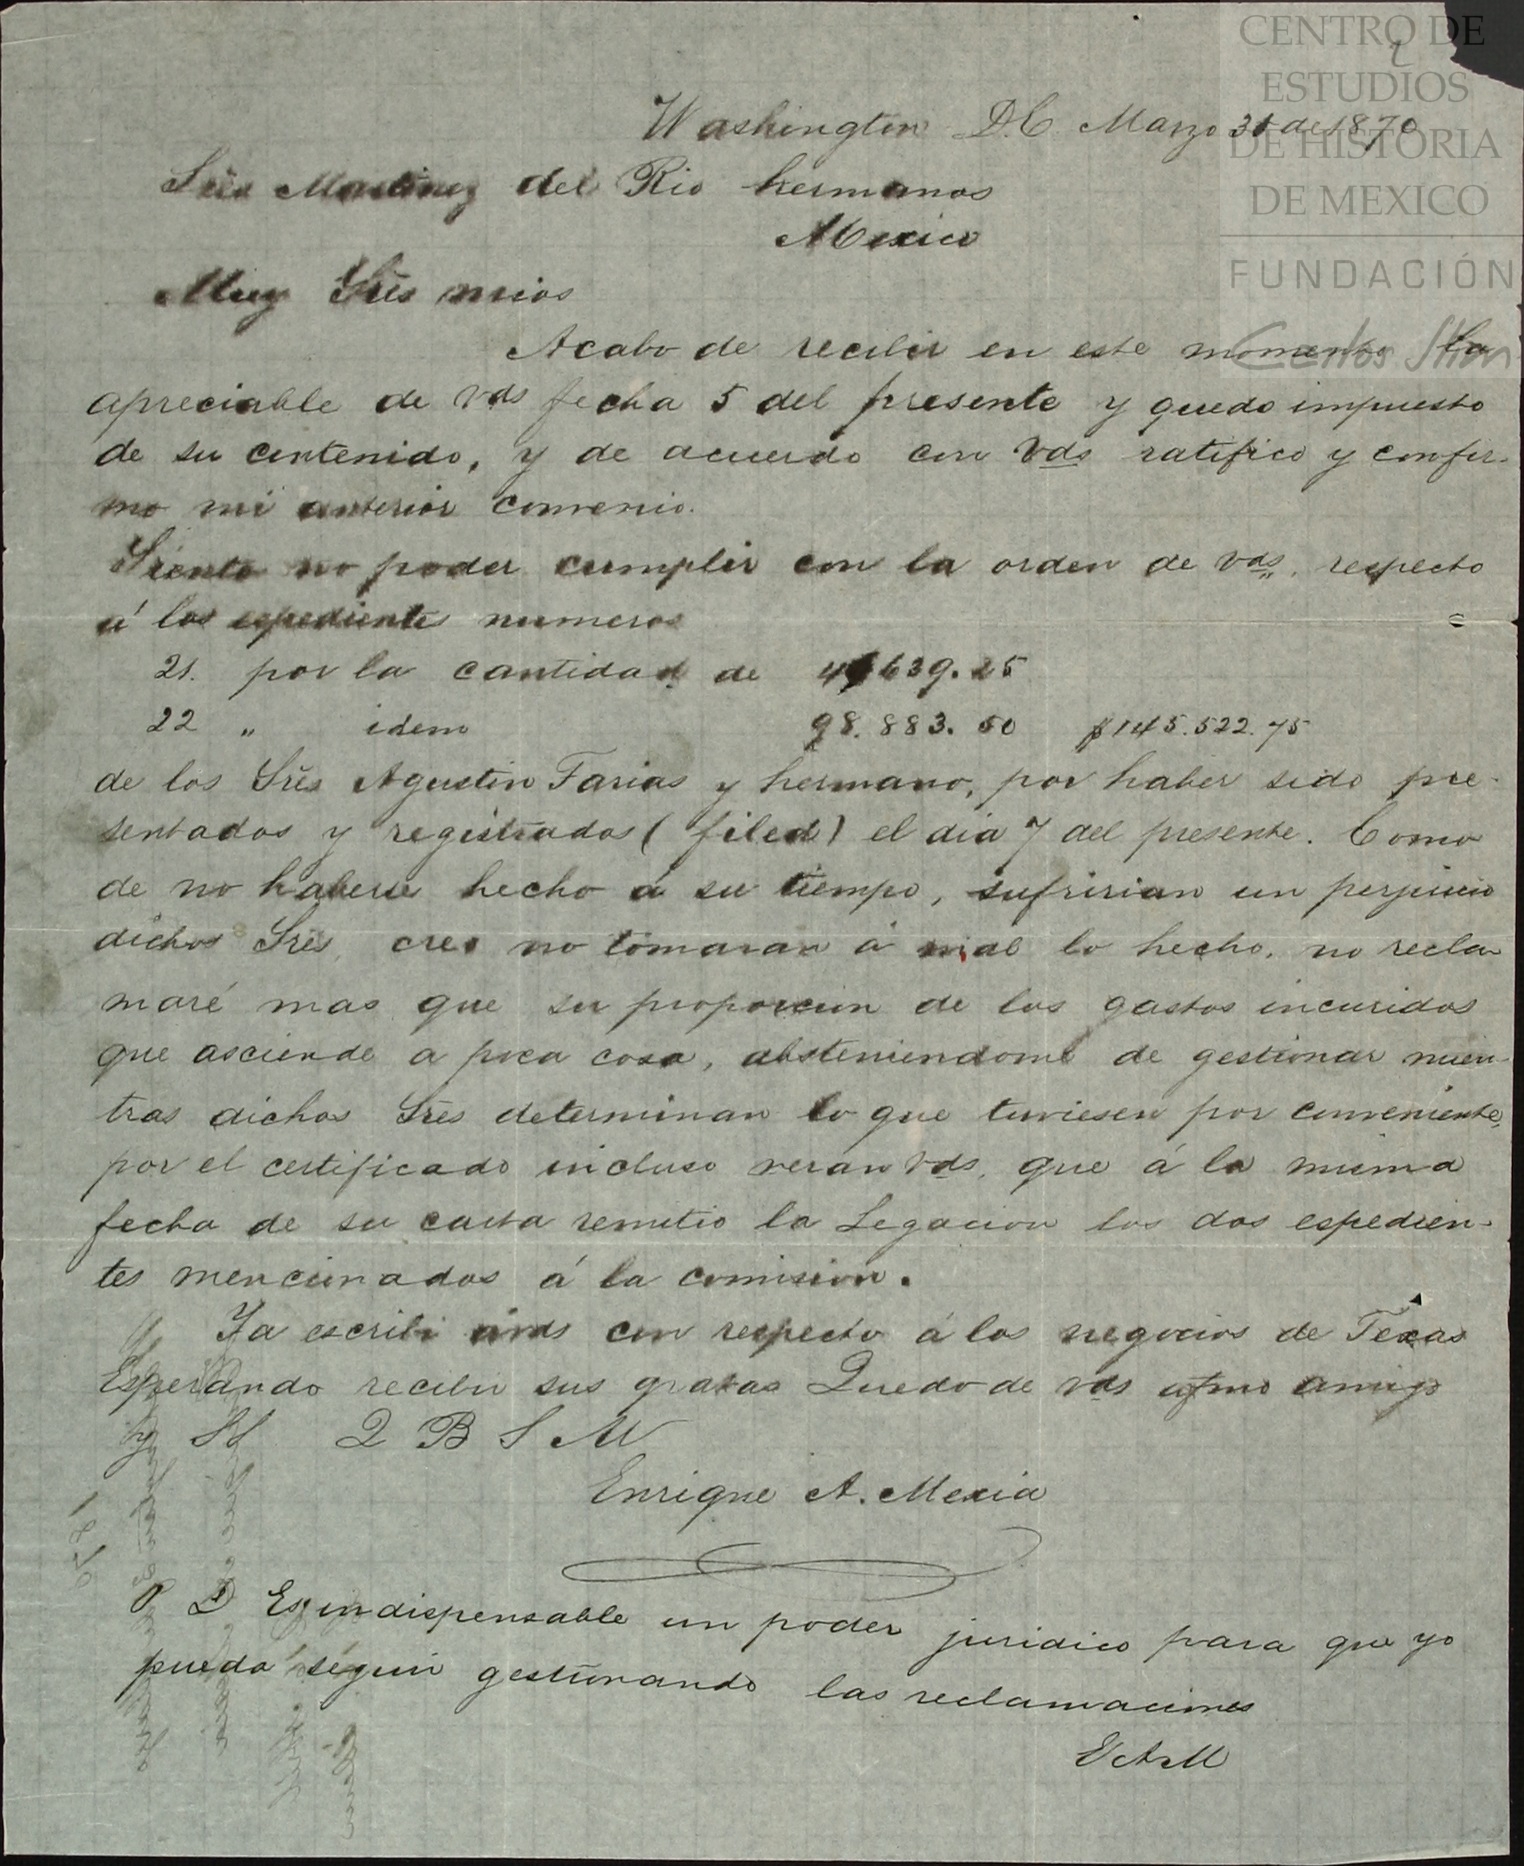 CENTRO DE
ESTUDIOS
DE HISTORIA
DE MEXICO
FUNDACIÓN
Carlos Slim
Washington D.C. Marzo 31 de 1870
Sres Martinez del Rio hermanos
Mexico
Muy Sres mios
Acabo de recibir en este momento la
apreciable de Vds fecha 5 del presente y quedo impuesto
de su contenido, y de acuerdo con Vds ratifico y confir-
mo mi anterior convenio.
Siento no poder cumplir con la orden de Vds, respecto
á los espedientes numeros
21. por la cantidad de 639.25
22 " idem 98.883.50 $145.522.75
de los Sres Agustin Farias y hermano, por haber sido pre-
sentados y registrados (filed) el dia 7 del presente. Como
de no haberse hecho á su tiempo, sufririan un perjuicio
dichos Sres, creo no tomaran á mal lo hecho, no recla
maré mas que su proporcion de los gastos incuridos
que asciende a poca cosa, absteniendome de gestionar mien-
tras dichos Sres determinan lo que tuviesen por conveniente,
por el certificado incluso veran Vds. que á la misma
fecha de su carta remitio la Legacion los dos espedien-
tes mencionados á la comision.
Ya escribi á Vds con respecto á los negocios de Texas
Esperando recibir sus gratas Quedo de Vds afmo amigo
y SS Q B S M
Enrique A. Mexia
P D Es indispensable un poder juridico para que yo
pueda seguir gestionando las reclamaciones
EAM
1870